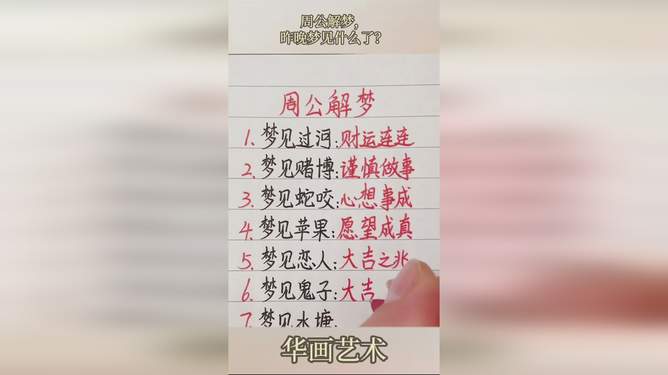 周公解梦,
昨晚梦见什么了?
周公解梦
1.梦见过河:财运连连
2.梦见赌博:谨慎做事
3.梦见蛇咬:心想事成
4.梦见苹果:愿望成真
5.梦见恋人:大吉之兆
6.梦见鬼子:大吉
7.梦见水塘.
华画艺术